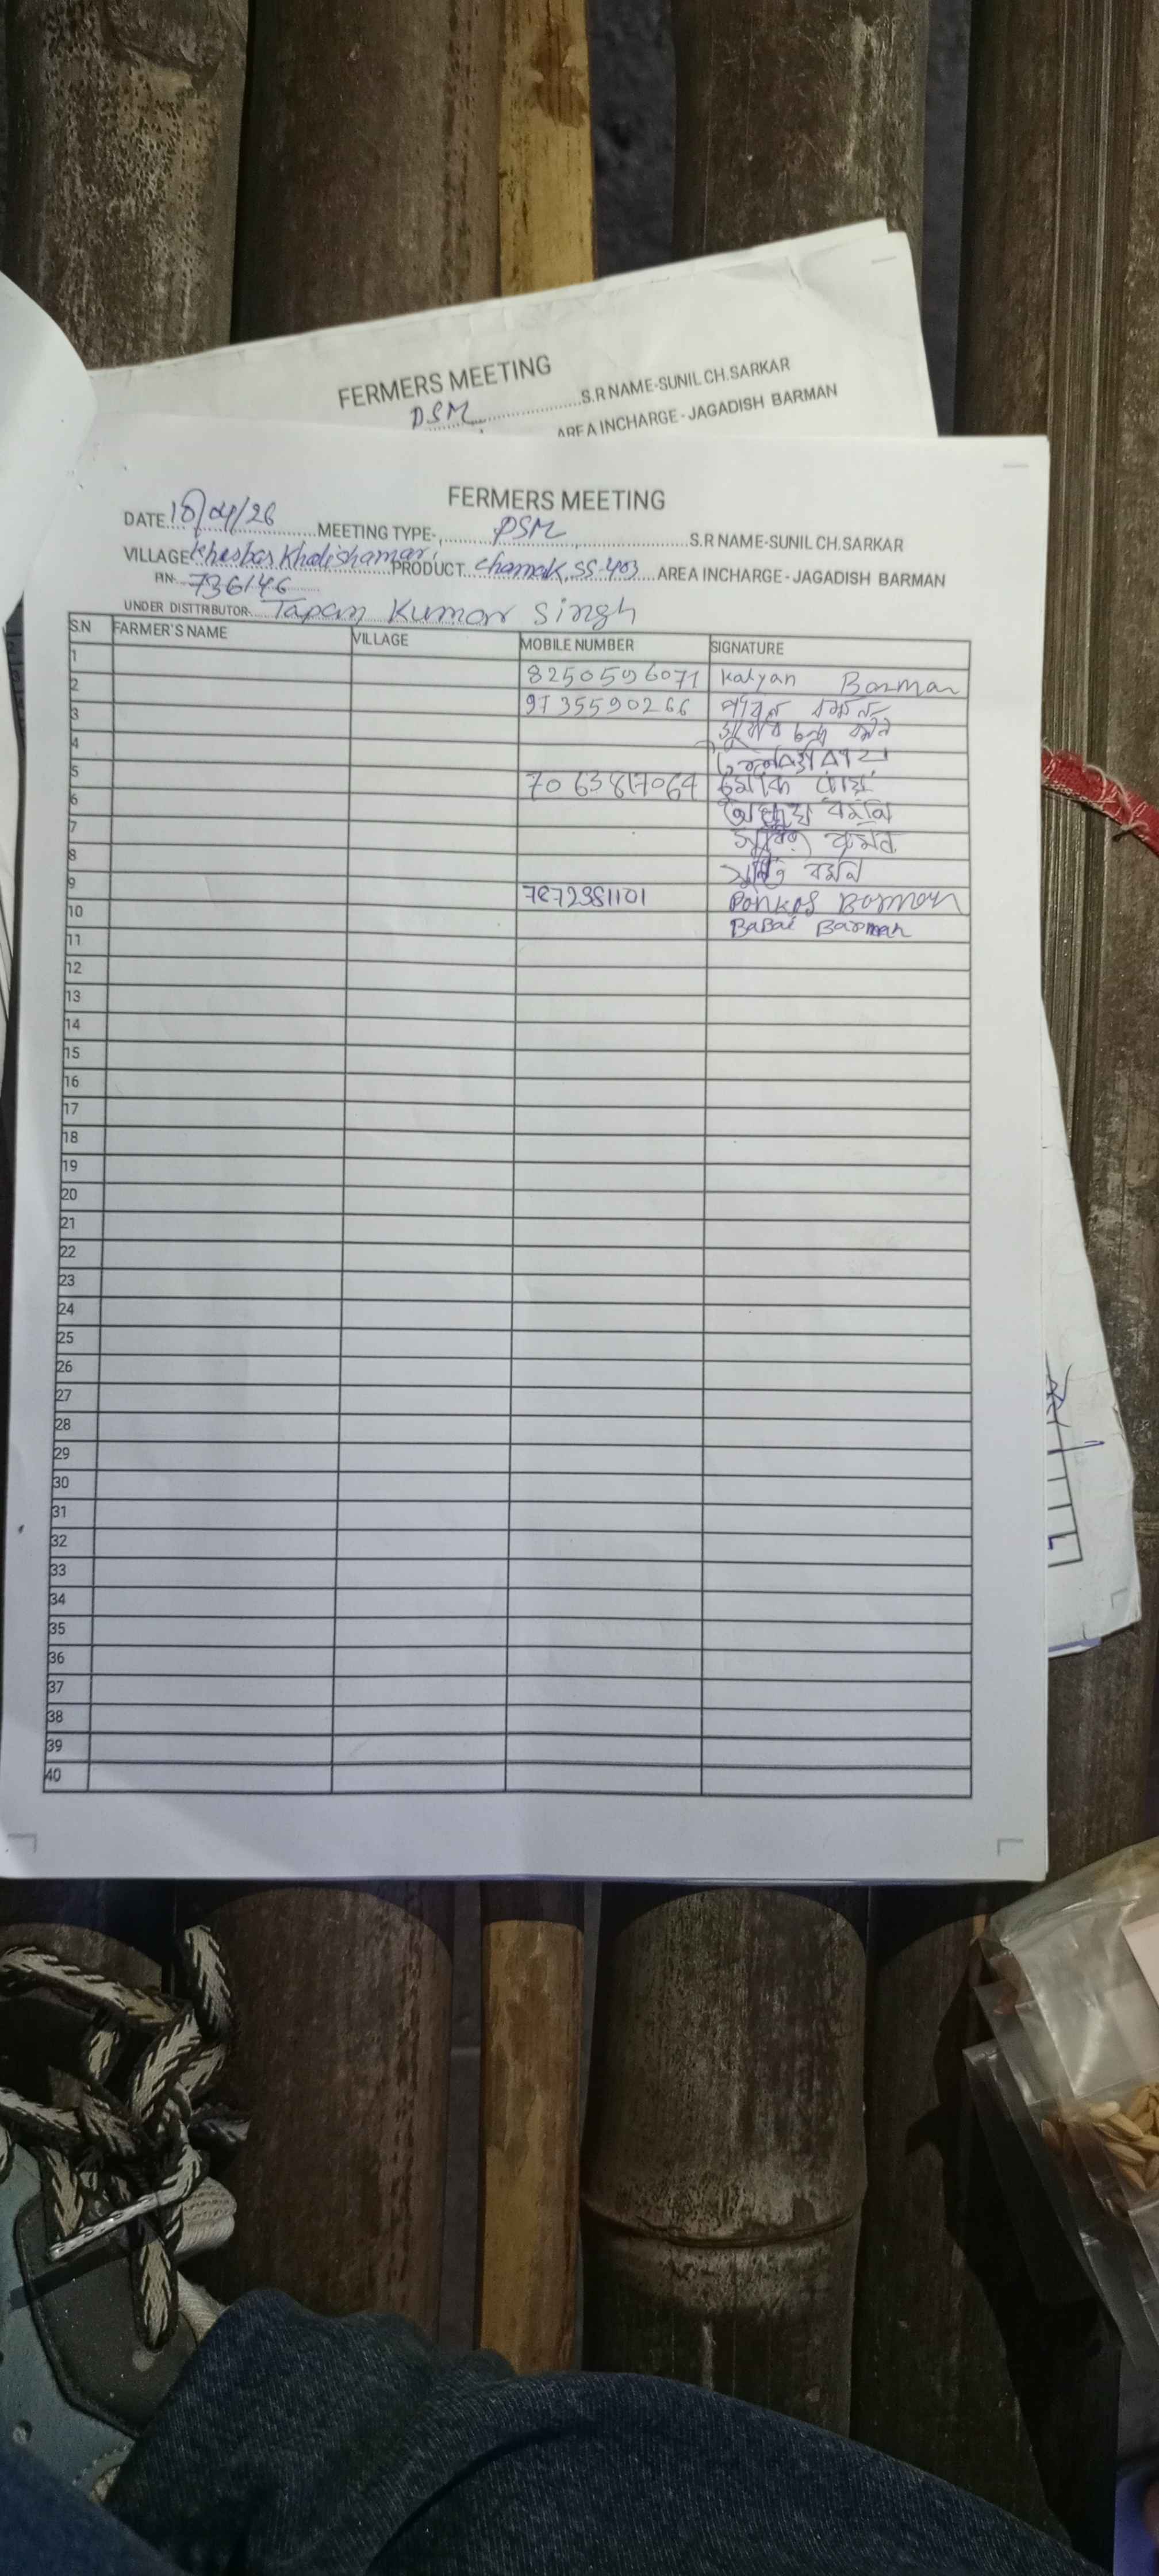 FERMERS MEETING
DSM S.R NAME-SUNIL CH.SARKAR
AREA INCHARGE - JAGADISH BARMAN
FERMERS MEETING
DATE 18/04/26 MEETING TYPE- DSM S.R NAME-SUNIL CH.SARKAR
VILLAGE Kharbar Khalishamari PRODUCT Chamak, SS-403 AREA INCHARGE - JAGADISH BARMAN
PIN- 736146
UNDER DISTTRIBUTOR- Tapan Kumar Singh
S.N FARMER'S NAME VILLAGE MOBILE NUMBER SIGNATURE
1 8250596071 Kalyan Barman
2 9735590266 বর্মন
3 চন্দ্র বর্মন
4
5 7063817064 রায়
6 বর্মন
7 বর্মন
8 বর্মন
9 7872381101 Pankaj Barman
10 Babai Barman
11
12
13
14
15
16
17
18
19
20
21
22
23
24
25
26
27
28
29
30
31
32
33
34
35
36
37
38
39
40